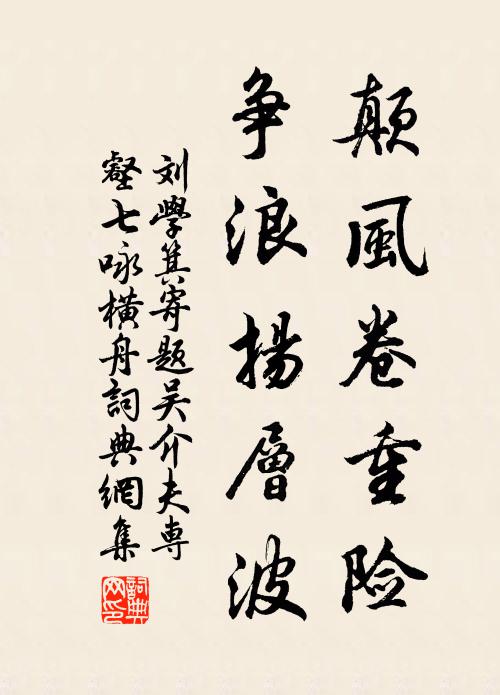 颠風卷重险
争浪揚層波
刘學箕寄题吴介夫専
壑七咏横舟詞典網集
詞典網印